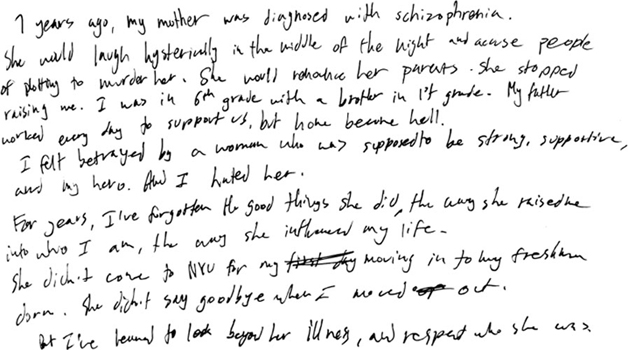 7 years ago, my mother was diagnosed with schizophrenia.
She would laugh hysterically in the middle of the night and accuse people
of plotting to murder her. She would her parents. She stopped
raising me. I was in 6th grade with a brother in 1st grade. My father
worked every day to support us, but home become hell.
I felt betrayed by a woman who was supposed to be strong, supportive,
and my hero. And I hated her.
For years, I've forgotten the good things she did, the way she raised me
into who I am, the way she influenced my life.
She didn't come to NYU for my first day moving in to my freshman
dorm. She didn't say goodbye when I moved out.
But I've learned to look beyond her illness, and respect who she was.